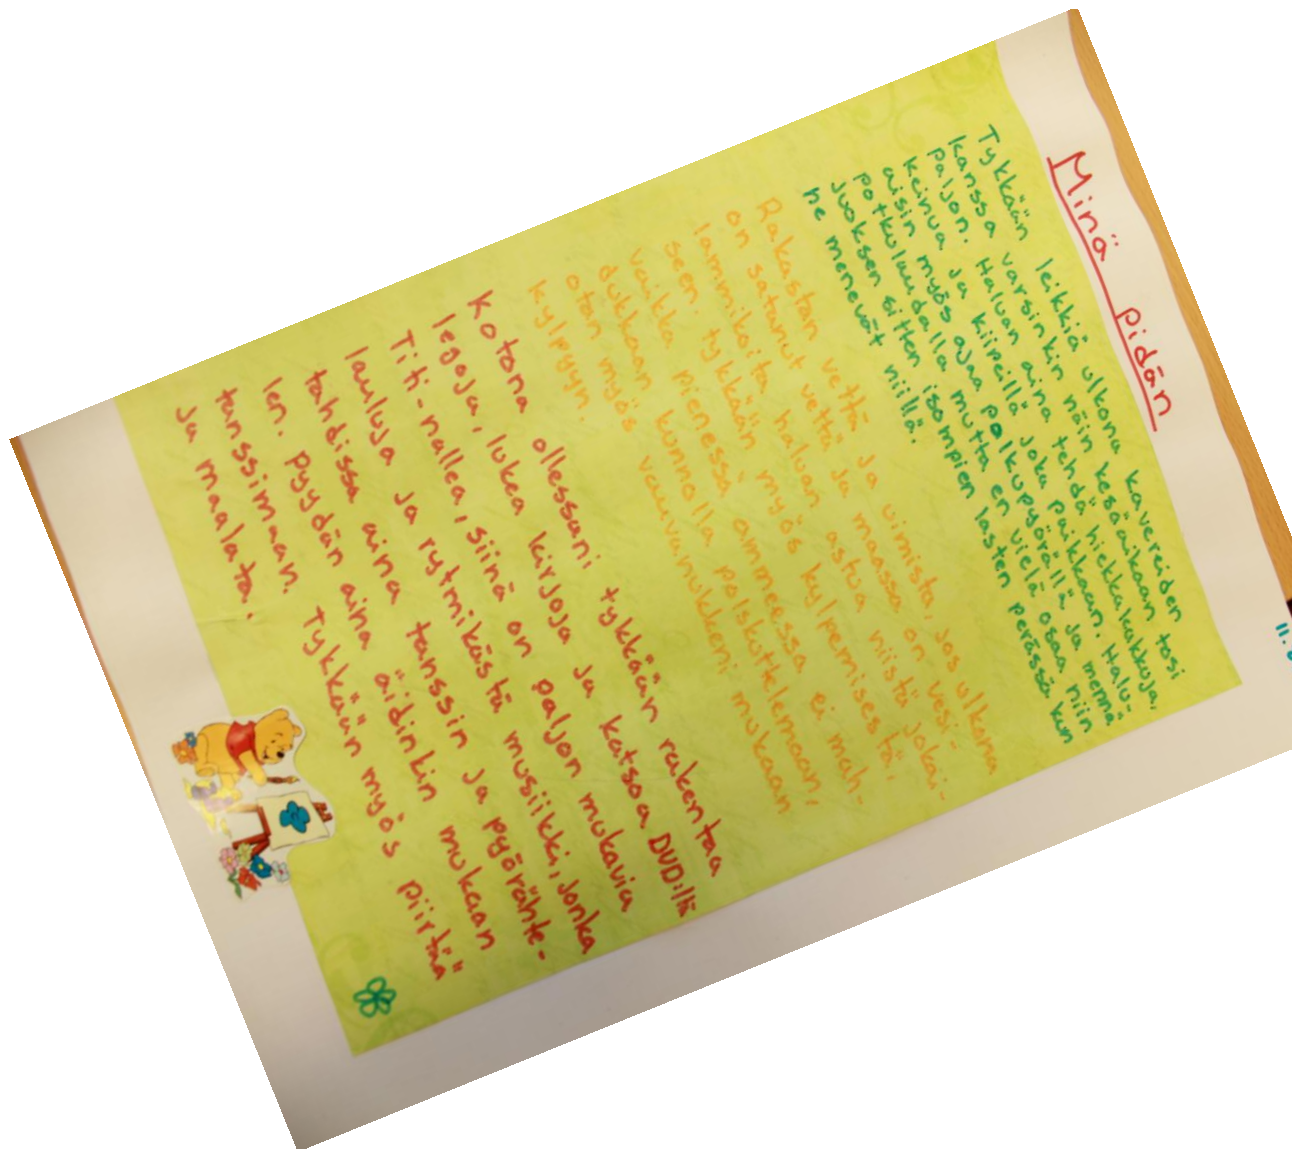 Minä pidän
Tykkään leikkiä ulkona kavereiden
kanssa varsinkin näin kesäaikaan tosi
paljon. Haluan aina tehdä hiekkakakkuja,
keinua ja kiipeillä joka paikkaan. Halu-
aisin myös ajaa polkupyörällä ja mennä
potkulaudalla mutta en vielä osaa niin
juoksen sitten isompien lasten perässä kun
he menevät niillä.
Rakastan vettä ja uimista, jos ulkona
on satanut vettä ja maassa on vesi-
lammikoita haluan astua niistä jokai-
seen. tykkään myös kylpemisestä,
vaikka pienessä ammeessa ei mah-
dukkaan kunnolla polskuttelemaan,
otan myös vauvanukkeni mukaan
kylpyyn.
Kotona ollessani tykkään rakentaa
legoja, lukea kirjoja ja katsoa DVD:llä
Titi-nallea, siinä on paljon mukavia
lauluja ja rytmikästä musiikki, jonka
tahdissa aina tanssin ja pyörähte-
len. Pyydän aina äidinkin mukaan
tanssimaan. Tykkään myös piirtää
ja maalata.
11.